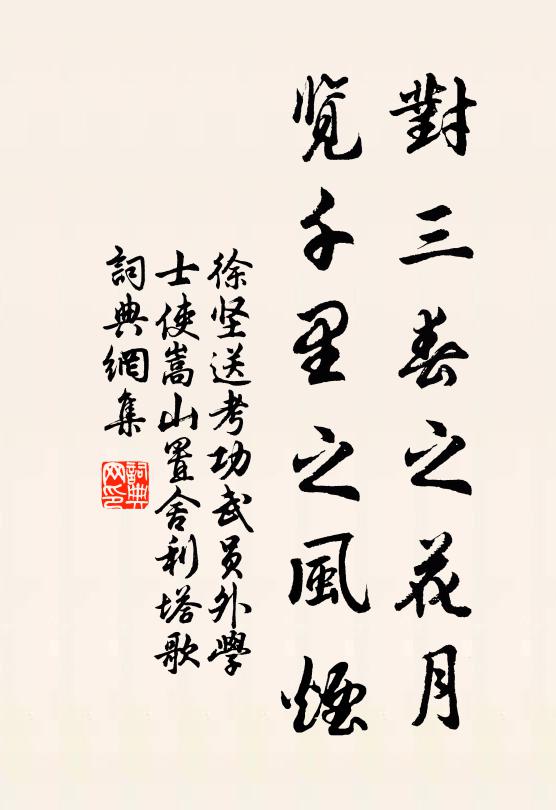 對三春之花月
覽千里之風煙
徐坚送考功武员外學
士使嵩山置舍利塔歌
詞典網集
詞典網印